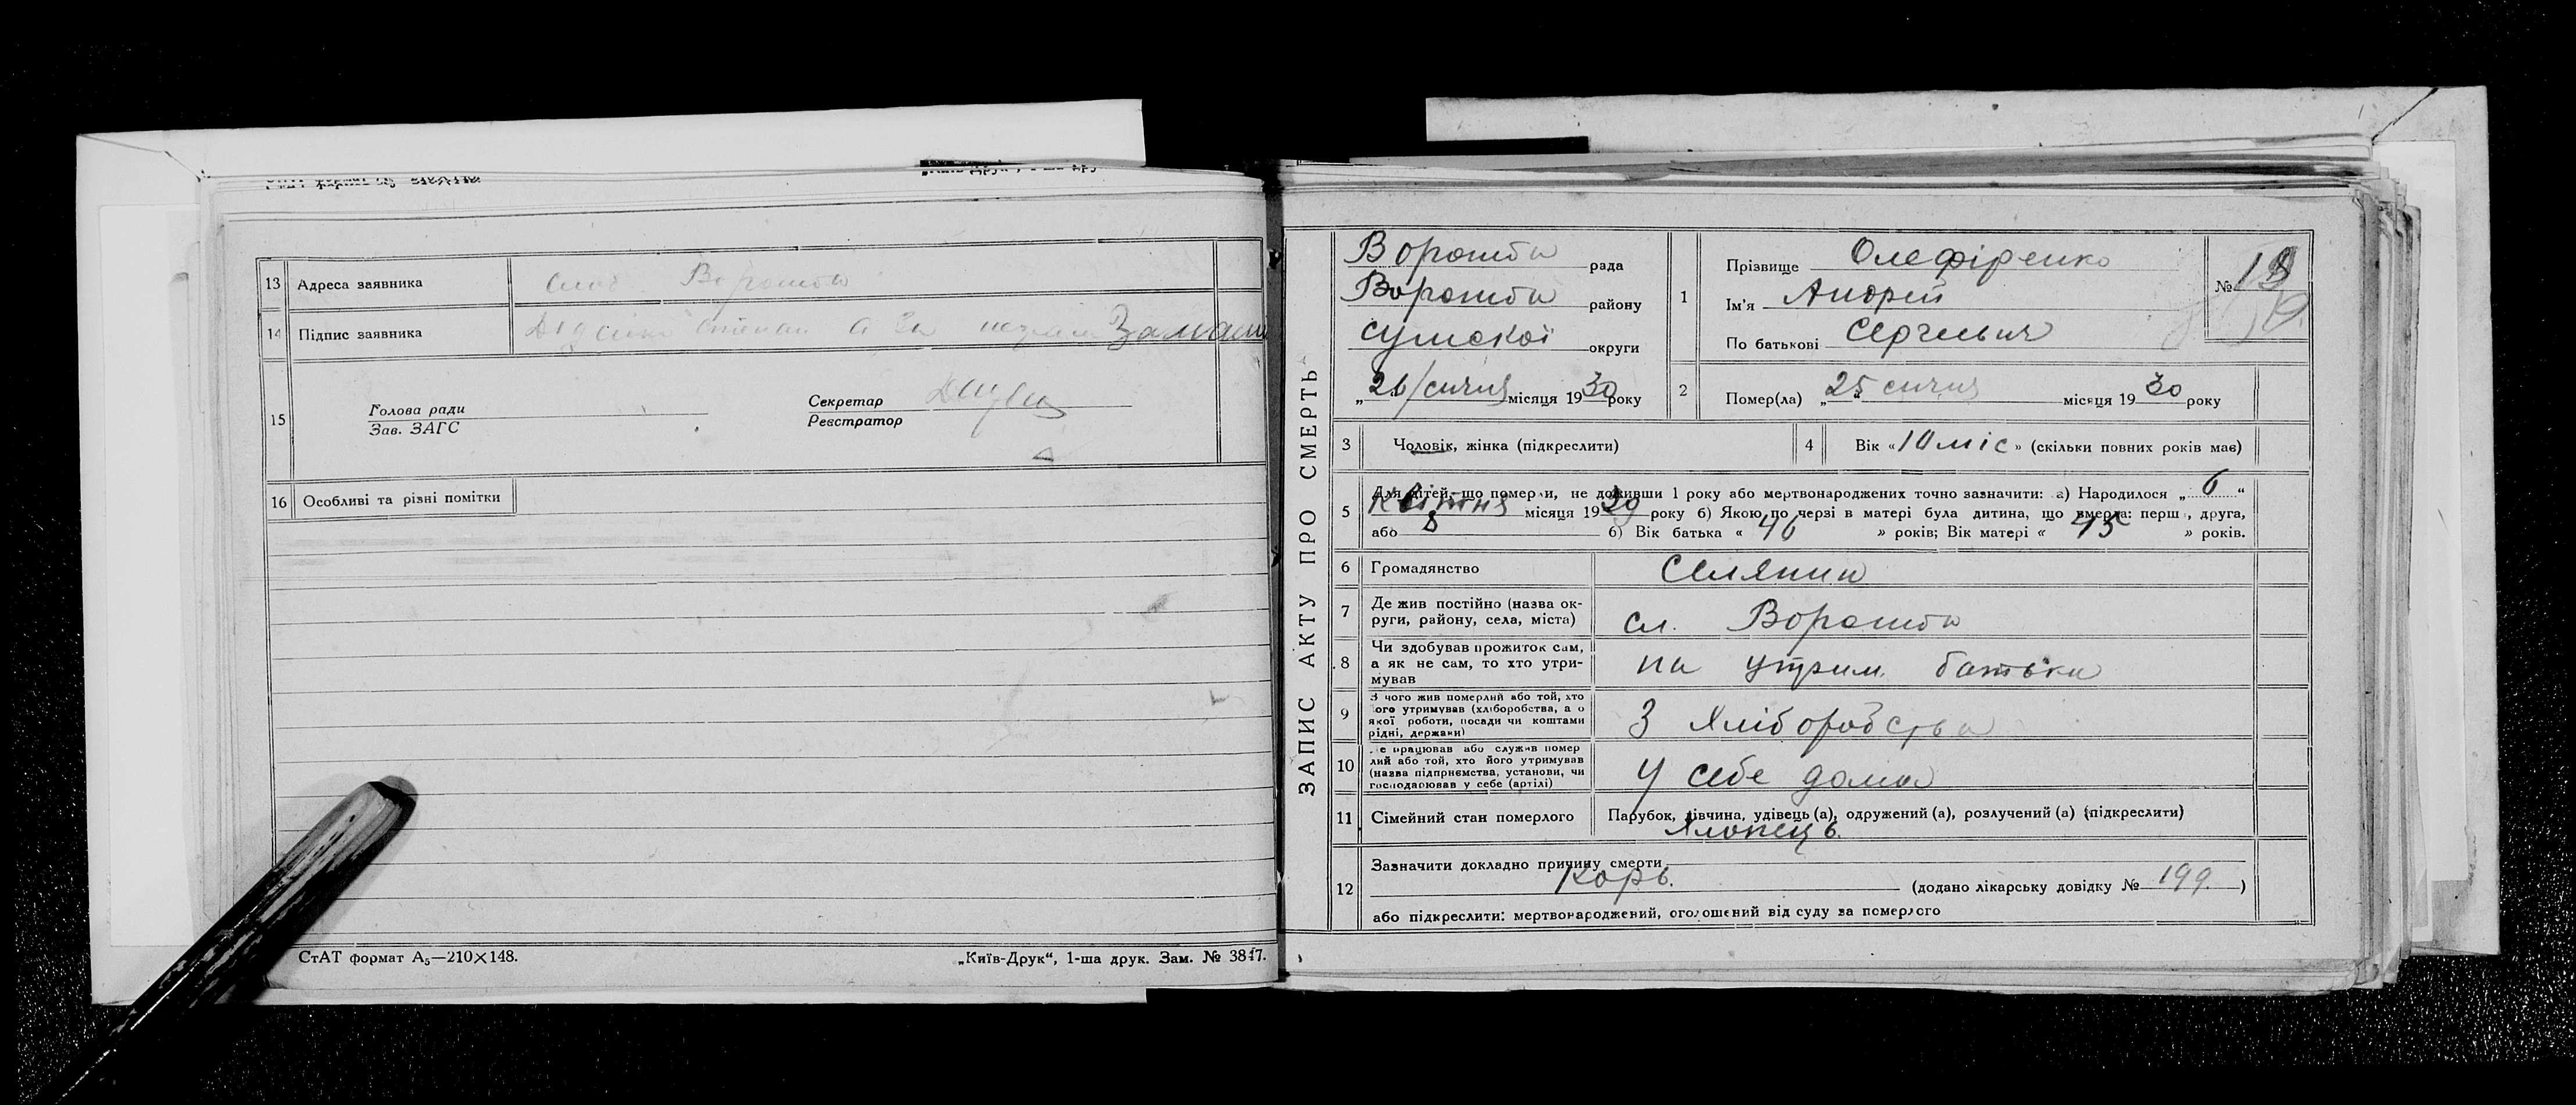 13 Адреса заявника Ворожба
14 Підпис заявника
15 Голова ради
Зав. ЗАГС
Секретар
Реєстратор
16 Особливі та різні помітки
СтАТ формат А₅—210×148.
„Київ-Друк“, 1-ша друк. Зам. № 3847.
ЗАПИС АКТУ ПРО СМЕРТЬ
Ворожба рада
Ворожба району
Сумської округи
„26/січня місяця 1930 року
1 Прізвище Олефіренко
Ім'я Андрій
По батькові Сергієвич
№ 19
2 Помер(ла) „25 січня місяця 1930 року
3 Чоловік, жінка (підкреслити)
4 Вік «10 міс» (скільки повних років має)
5 Для дітей, що померли, не доживши 1 року або мертвонароджених точно зазначити: а) Народилося „6“
Квітня місяця 1929 року б) Якою по черзі в матері була дитина, що вмерла: перша, друга,
або 8 б) Вік батька « 46 » років; Вік матері « 45 » років.
6 Громадянство Селянин
7 Де жив постійно (назва ок-
руги, району, села, міста) сл. Ворожба
8 Чи здобував прожиток сам,
а як не сам, то хто утри-
мував на утрим. батька
9 З чого жив померлий або той, хто
його утримував (хліборобства, а о
якої роботи, посади чи коштами
рідні, держави) З Хліборобства
10 Де працював або служив помер
лий або той, хто його утримував
(назва підприємства, установи, чи
господарював у себе (артілі) У себе дома
11 Сімейний стан померлого Парубок, дівчина, удівець (а), одружений (а), розлучений (а) (підкреслити)
Хлопець.
12 Зазначити докладно причину смерти
Корь. (додано лікарську довідку № 199.)
або підкреслити: мертвонароджений, оголошений від суду за померлого